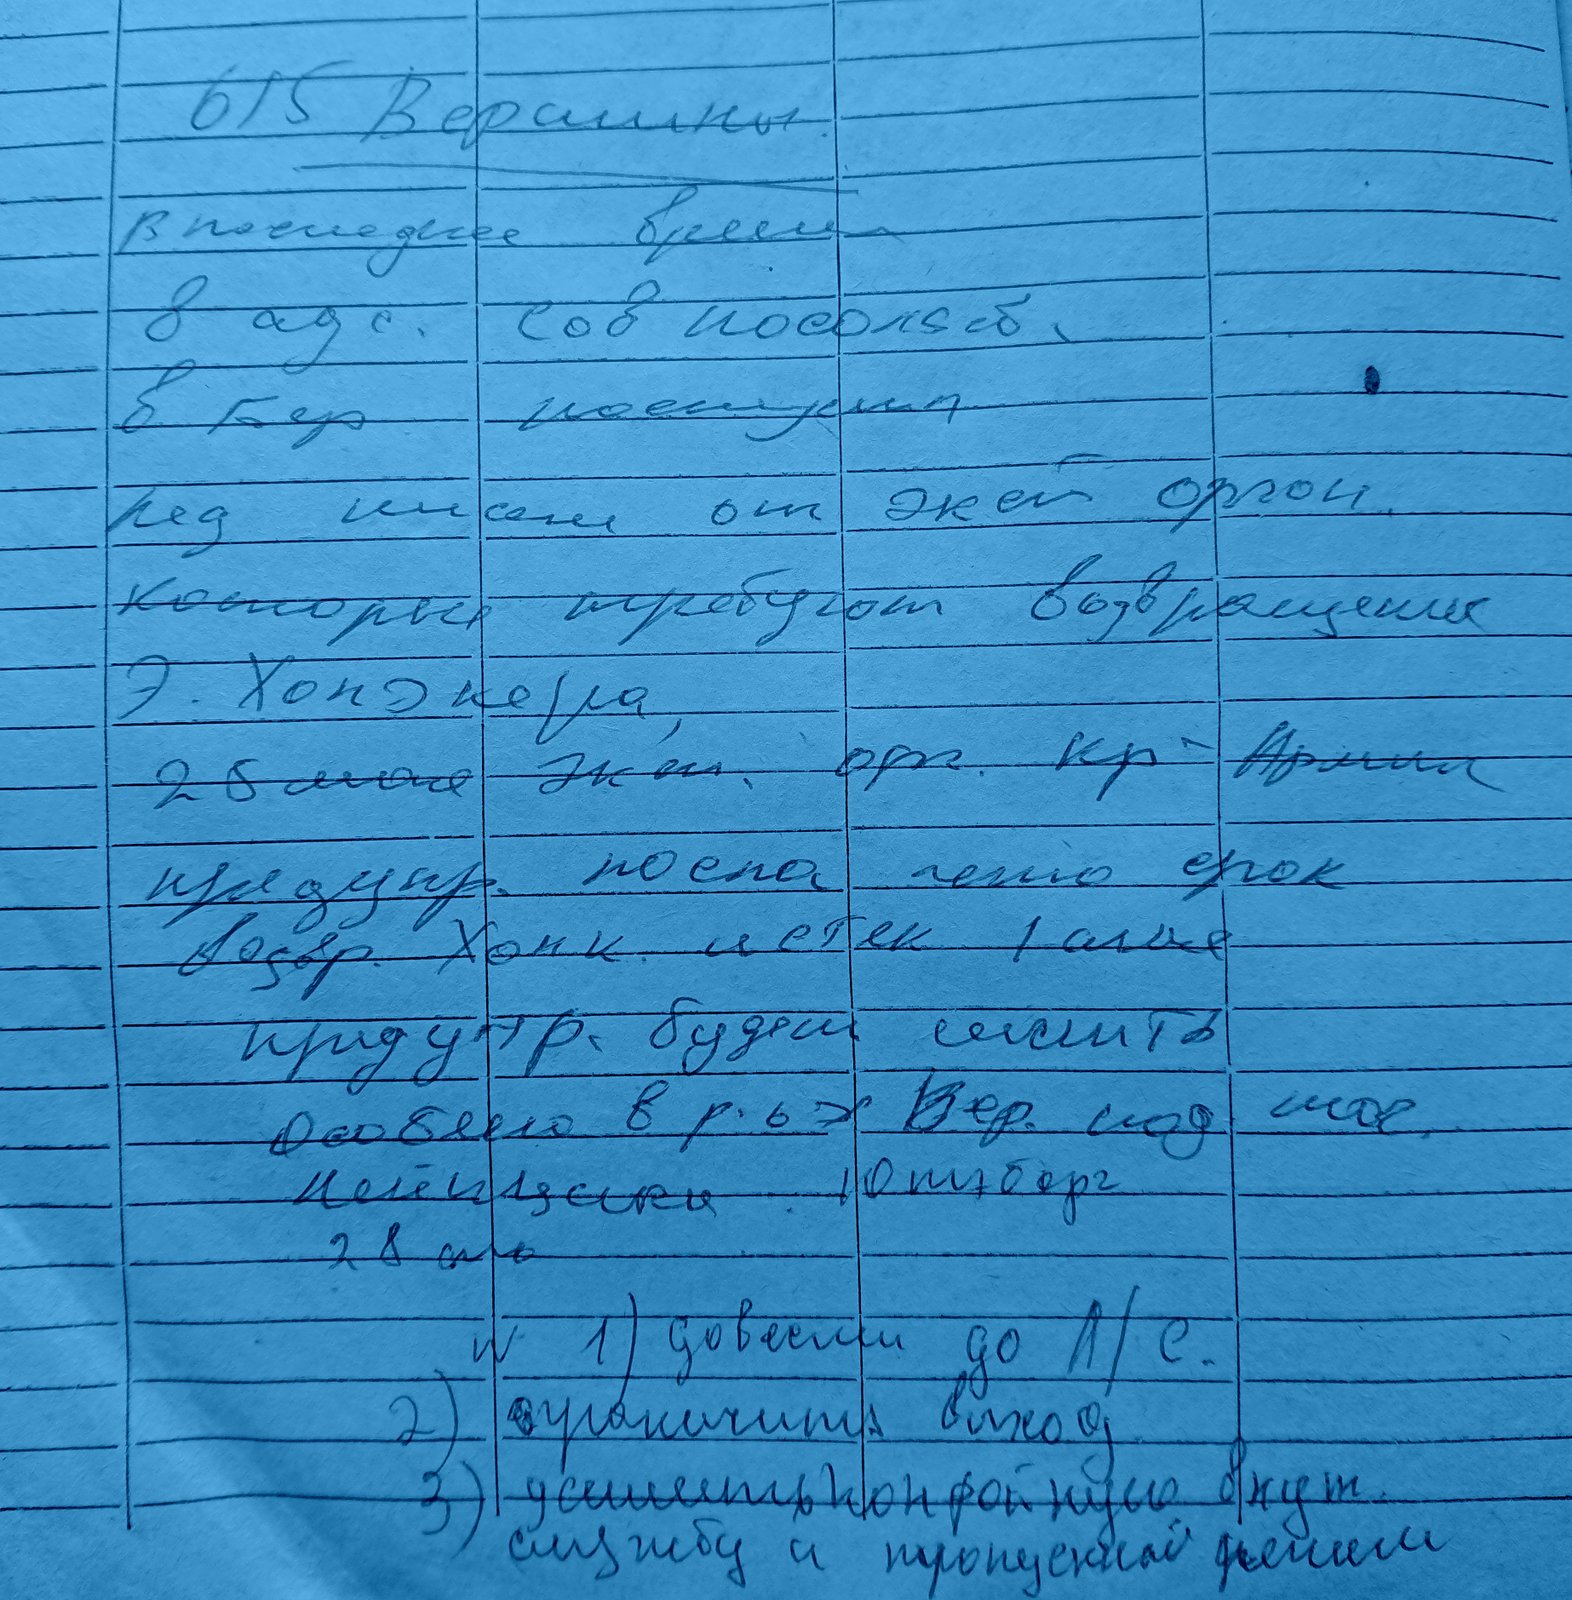 615 Вершины.
в последнее время
в адс. сов посольств.
в Бер поступил
ряд писем от экст орган.
которые требуют возвращения
Э. Хонэкера,
26 мая экст. орг. Кр-Армия
предупр. посла что срок
возвр. Хонк. истек 1 мая
предупр. будем
Особено в р.ах Вер. под
Ютэборг
28
1) довести до Л/С.
2) ограничить выход
3) усилить конвойную внут.
службу и пропускной режим